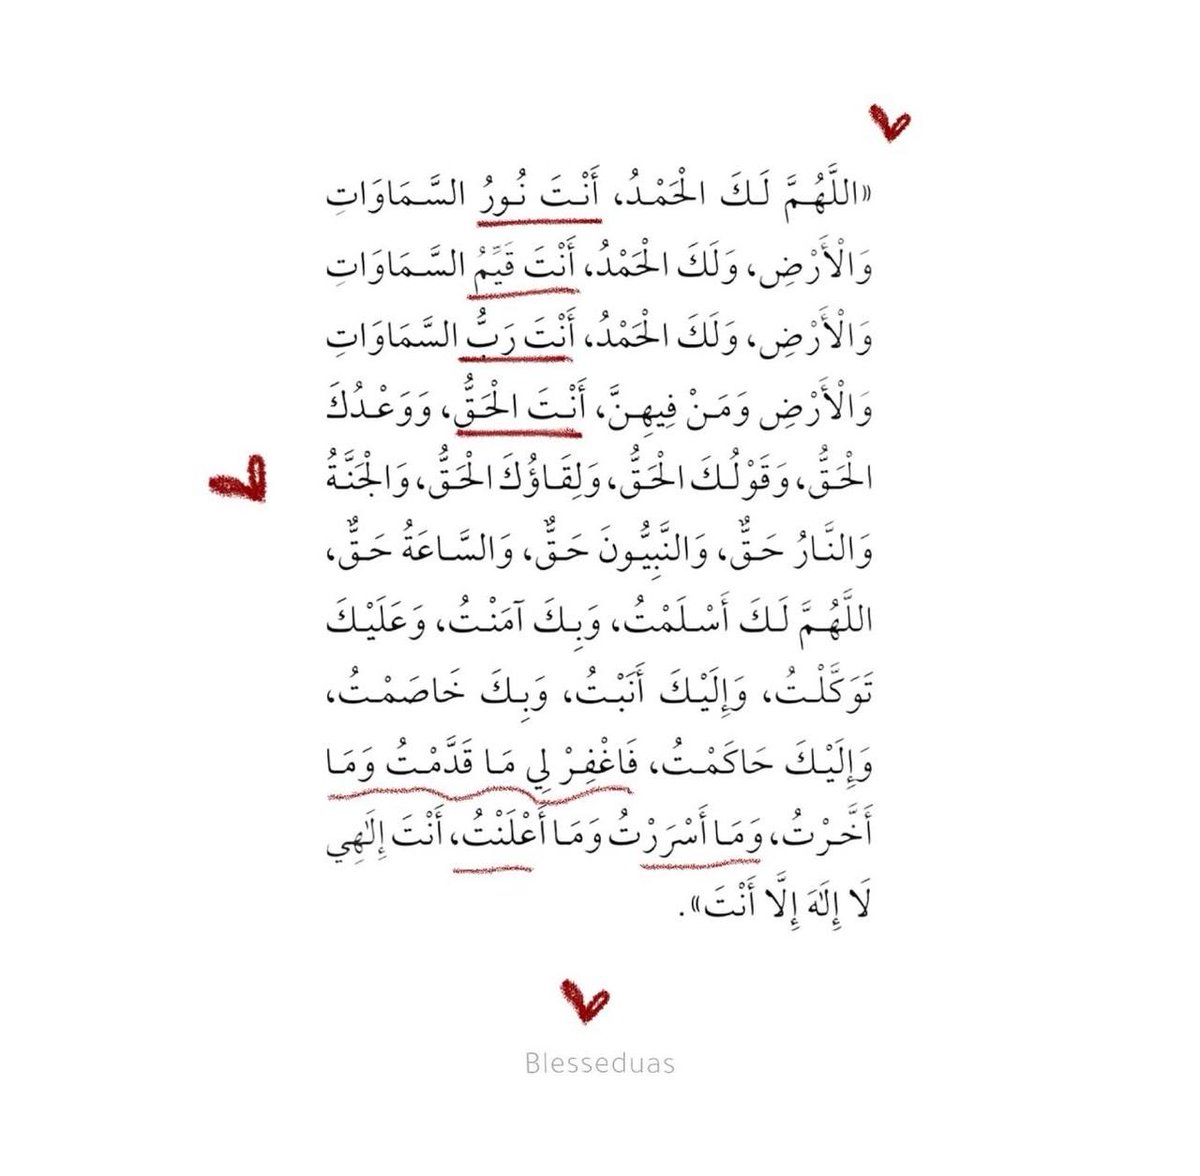 «اللَّهُمَّ لَكَ الْحَمْدُ، أَنْتَ نُورُ السَّمَاوَاتِ
وَالْأَرْضِ، وَلَكَ الْحَمْدُ، أَنْتَ قَيِّمُ السَّمَاوَاتِ
وَالْأَرْضِ، وَلَكَ الْحَمْدُ، أَنْتَ رَبُّ السَّمَاوَاتِ
وَالْأَرْضِ وَمَنْ فِيهِنَّ، أَنْتَ الْحَقُّ، وَوَعْدُكَ
الْحَقُّ، وَقَوْلُكَ الْحَقُّ، وَلِقَاؤُكَ الْحَقُّ، وَالْجَنَّةُ
وَالنَّارُ حَقٌّ، وَالنَّبِيُّونَ حَقٌّ، وَالسَّاعَةُ حَقٌّ،
اللَّهُمَّ لَكَ أَسْلَمْتُ، وَبِكَ آمَنْتُ، وَعَلَيْكَ
تَوَكَّلْتُ، وَإِلَيْكَ أَنَبْتُ، وَبِكَ خَاصَمْتُ،
وَإِلَيْكَ حَاكَمْتُ، فَاغْفِرْ لِي مَا قَدَّمْتُ وَمَا
أَخَّرْتُ، وَمَا أَسْرَرْتُ وَمَا أَعْلَنْتُ، أَنْتَ إِلَٰهِي
لَا إِلَٰهَ إِلَّا أَنْتَ».
Blesseduas